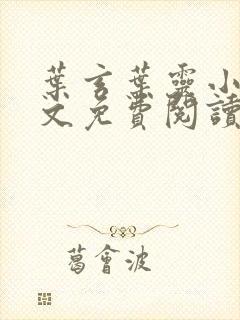 葉言葉靈小
文免費閱讀
葛會波